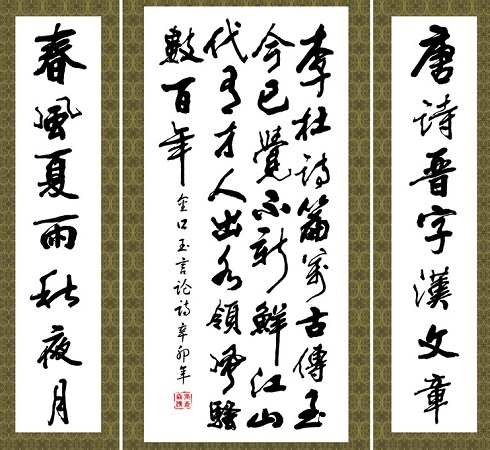 唐詩晉字漢文章
李杜詩篇萬古傳至
今已覺不新鮮江山
代有才人出各領風騷
數百年
金口玉言論詩辛卯年
春風夏雨秋夜月